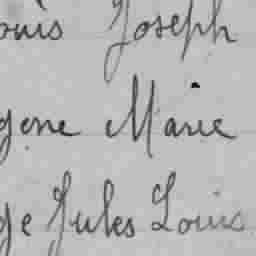 ouis Joseph
gene Marie
ge Jules Louis